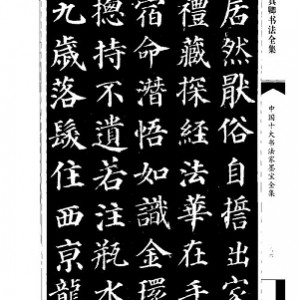 真卿书法全集
中国十大书法家墨宝全集
一六
居然猒俗自擔出家
禮藏探經法華在手
宿命潛悟如識金環
揔持不遺若注瓶水
九歲落髮住西京龍